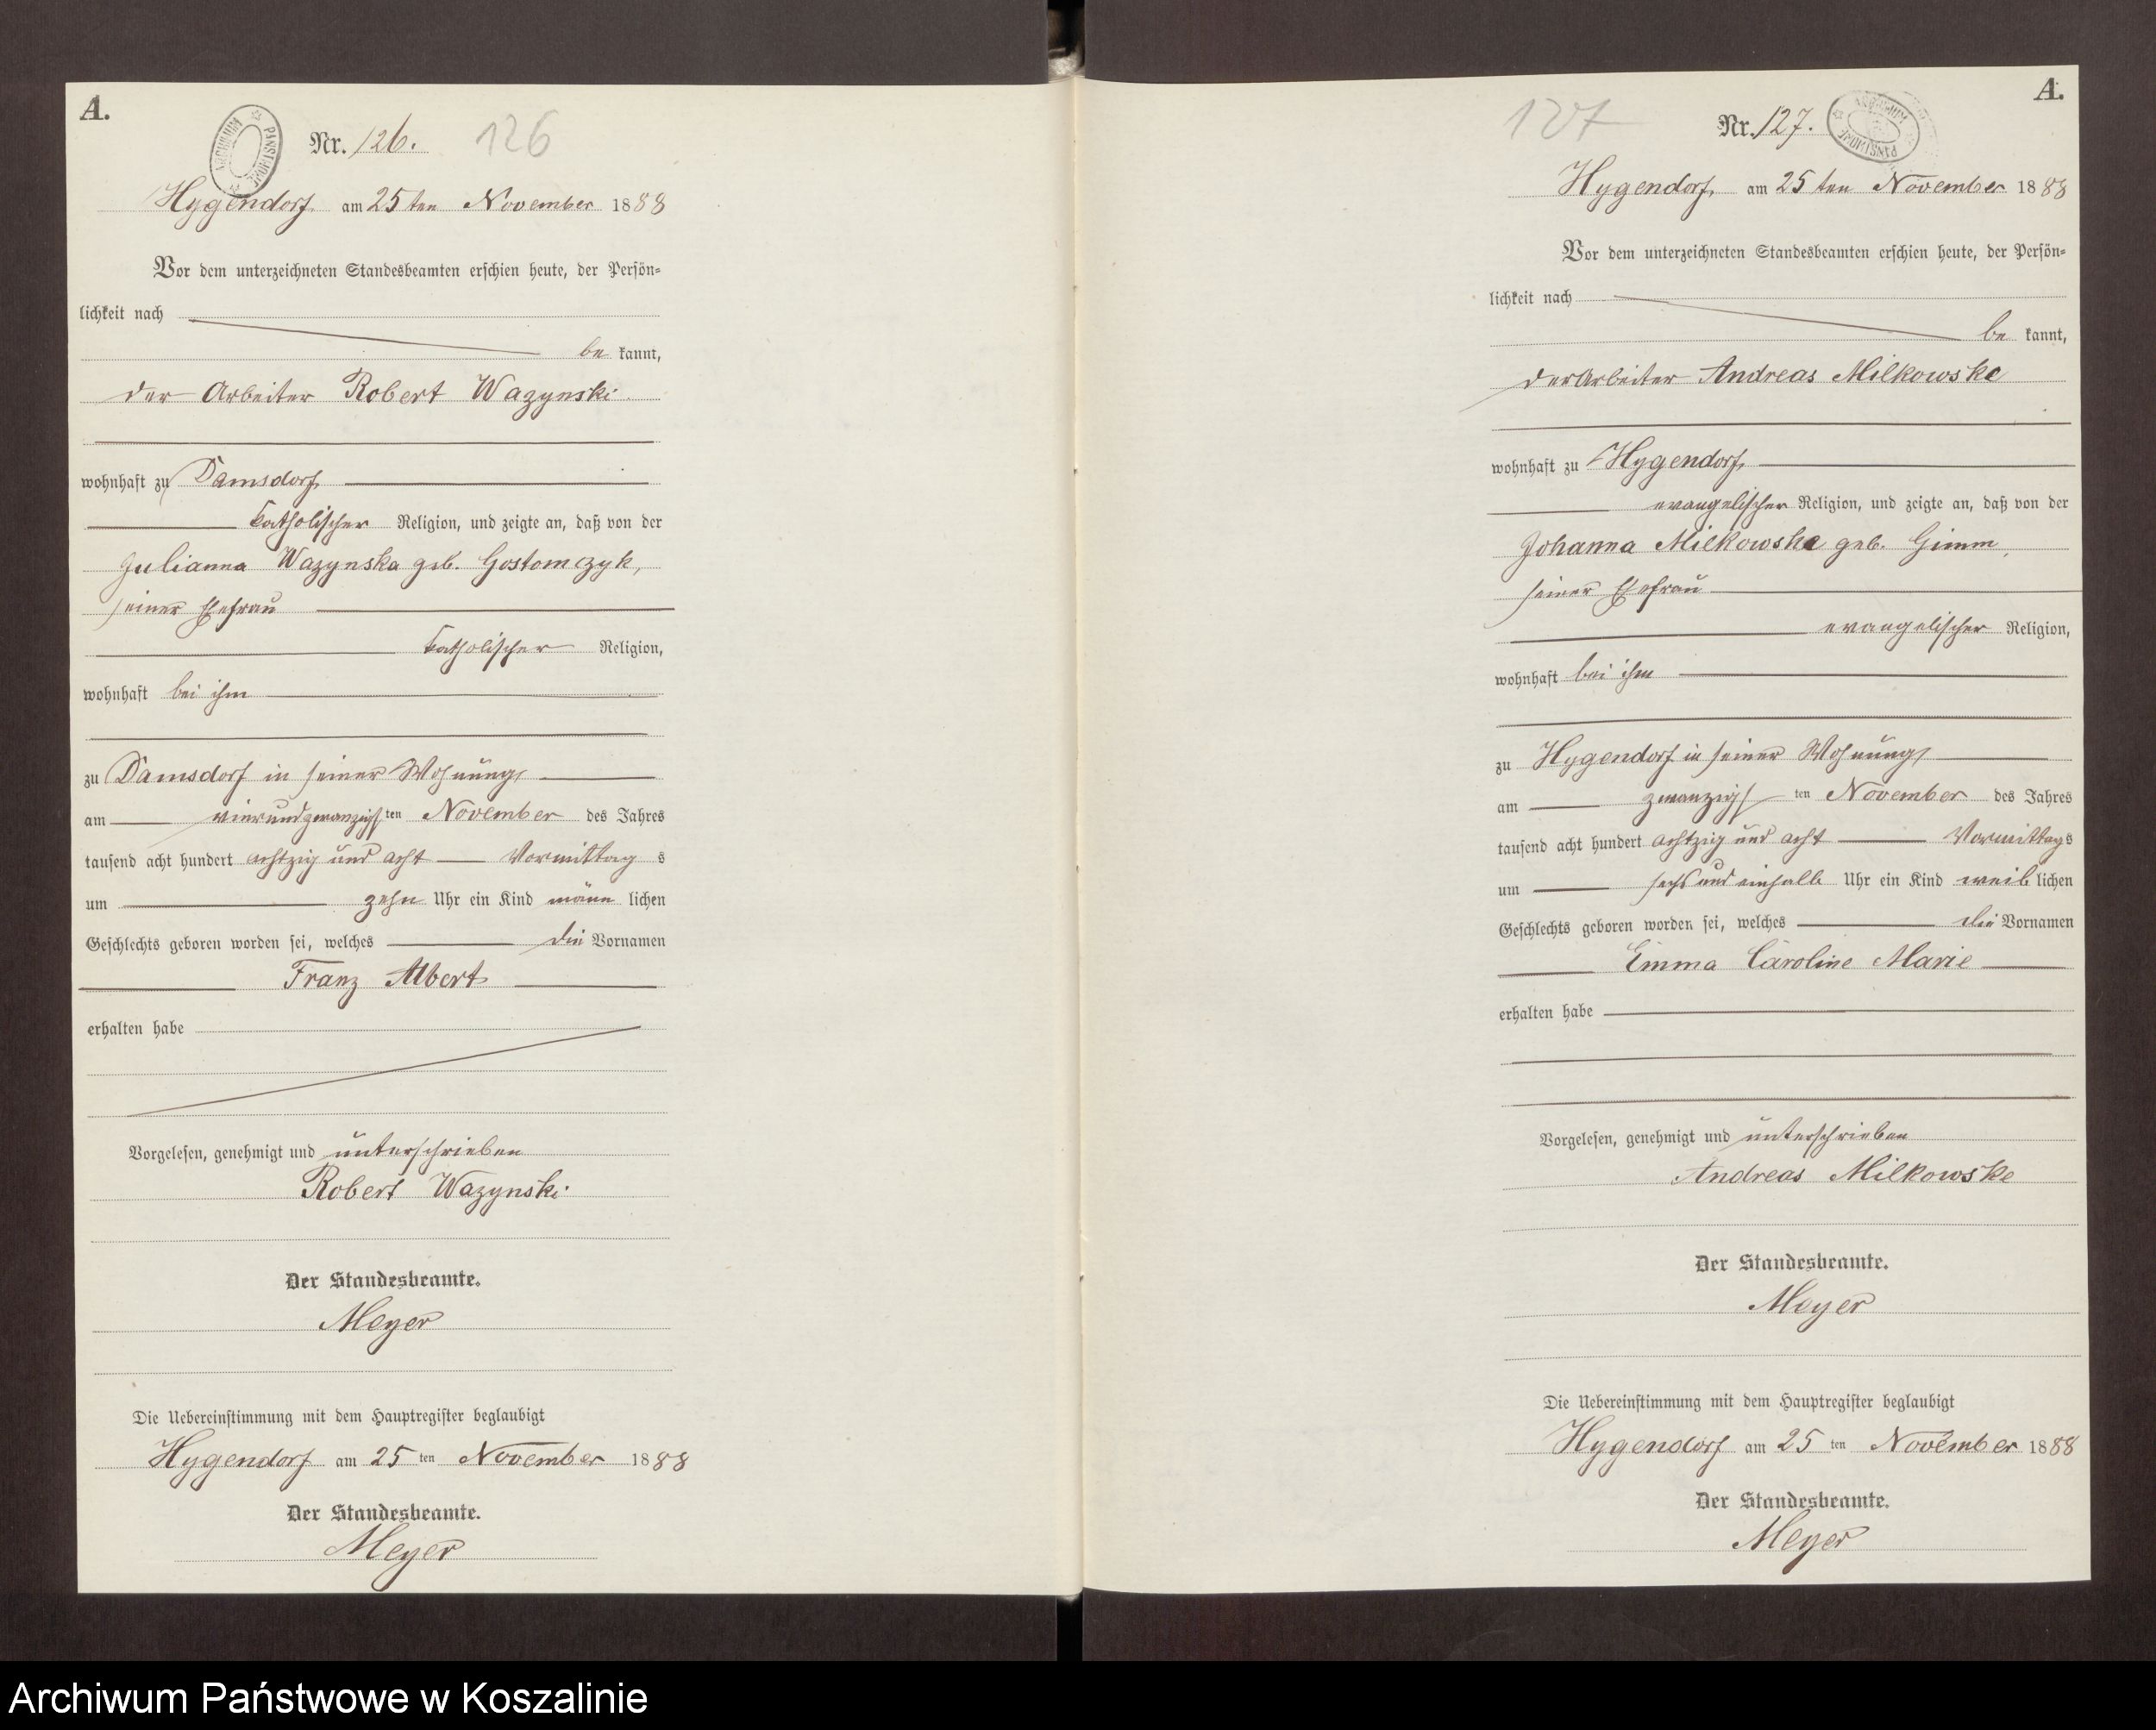 A.
ARCHIWUM PAŃSTWOWE
Nr. 126.
126
Hygendorf am 25ten November 1888
Vor dem unterzeichneten Standesbeamten erschien heute, der Persön-
lichkeit nach
be kannt,
der Arbeiter Robert Wazynski
wohnhaft zu Damsdorf
katholischer Religion, und zeigte an, daß von der
Julianna Wazynska geb. Gostomczyk,
seiner Ehefrau
katholischer Religion,
wohnhaft bei ihm
zu Damsdorf in seiner Wohnung,
am vierundzwanzigsten November des Jahres
tausend acht hundert achtzig und acht Vormittag s
um zehn Uhr ein Kind männ lichen
Geschlechts geboren worden sei, welches die Vornamen
Franz Albert
erhalten habe
Vorgelesen, genehmigt und unterschrieben
Robert Wazynski
Der Standesbeamte.
Meyer
Die Uebereinstimmung mit dem Hauptregister beglaubigt
Hygendorf am 25 ten November 1888
Der Standesbeamte.
Meyer
A.
127
Nr. 127.
ARCHIWUM PAŃSTWOWE
Hygendorf, am 25ten November 1888
Vor dem unterzeichneten Standesbeamten erschien heute, der Persön-
lichkeit nach
be kannt,
der Arbeiter Andreas Milkowske
wohnhaft zu Hygendorf,
evangelischer Religion, und zeigte an, daß von der
Johanna Milkowske geb. Gimm,
seiner Ehefrau
evangelischer Religion,
wohnhaft bei ihm
zu Hygendorf in seiner Wohnung,
am zwanzigs ten November des Jahres
tausend acht hundert achtzig und acht Vormittags
um sechs und einhalb Uhr ein Kind weib lichen
Geschlechts geboren worden sei, welches die Vornamen
Emma Caroline Marie
erhalten habe
Vorgelesen, genehmigt und unterschrieben
Andreas Milkowske
Der Standesbeamte.
Meyer
Die Uebereinstimmung mit dem Hauptregister beglaubigt
Hygendorf am 25 ten November 1888
Der Standesbeamte.
Meyer
Archiwum Państwowe w Koszalinie